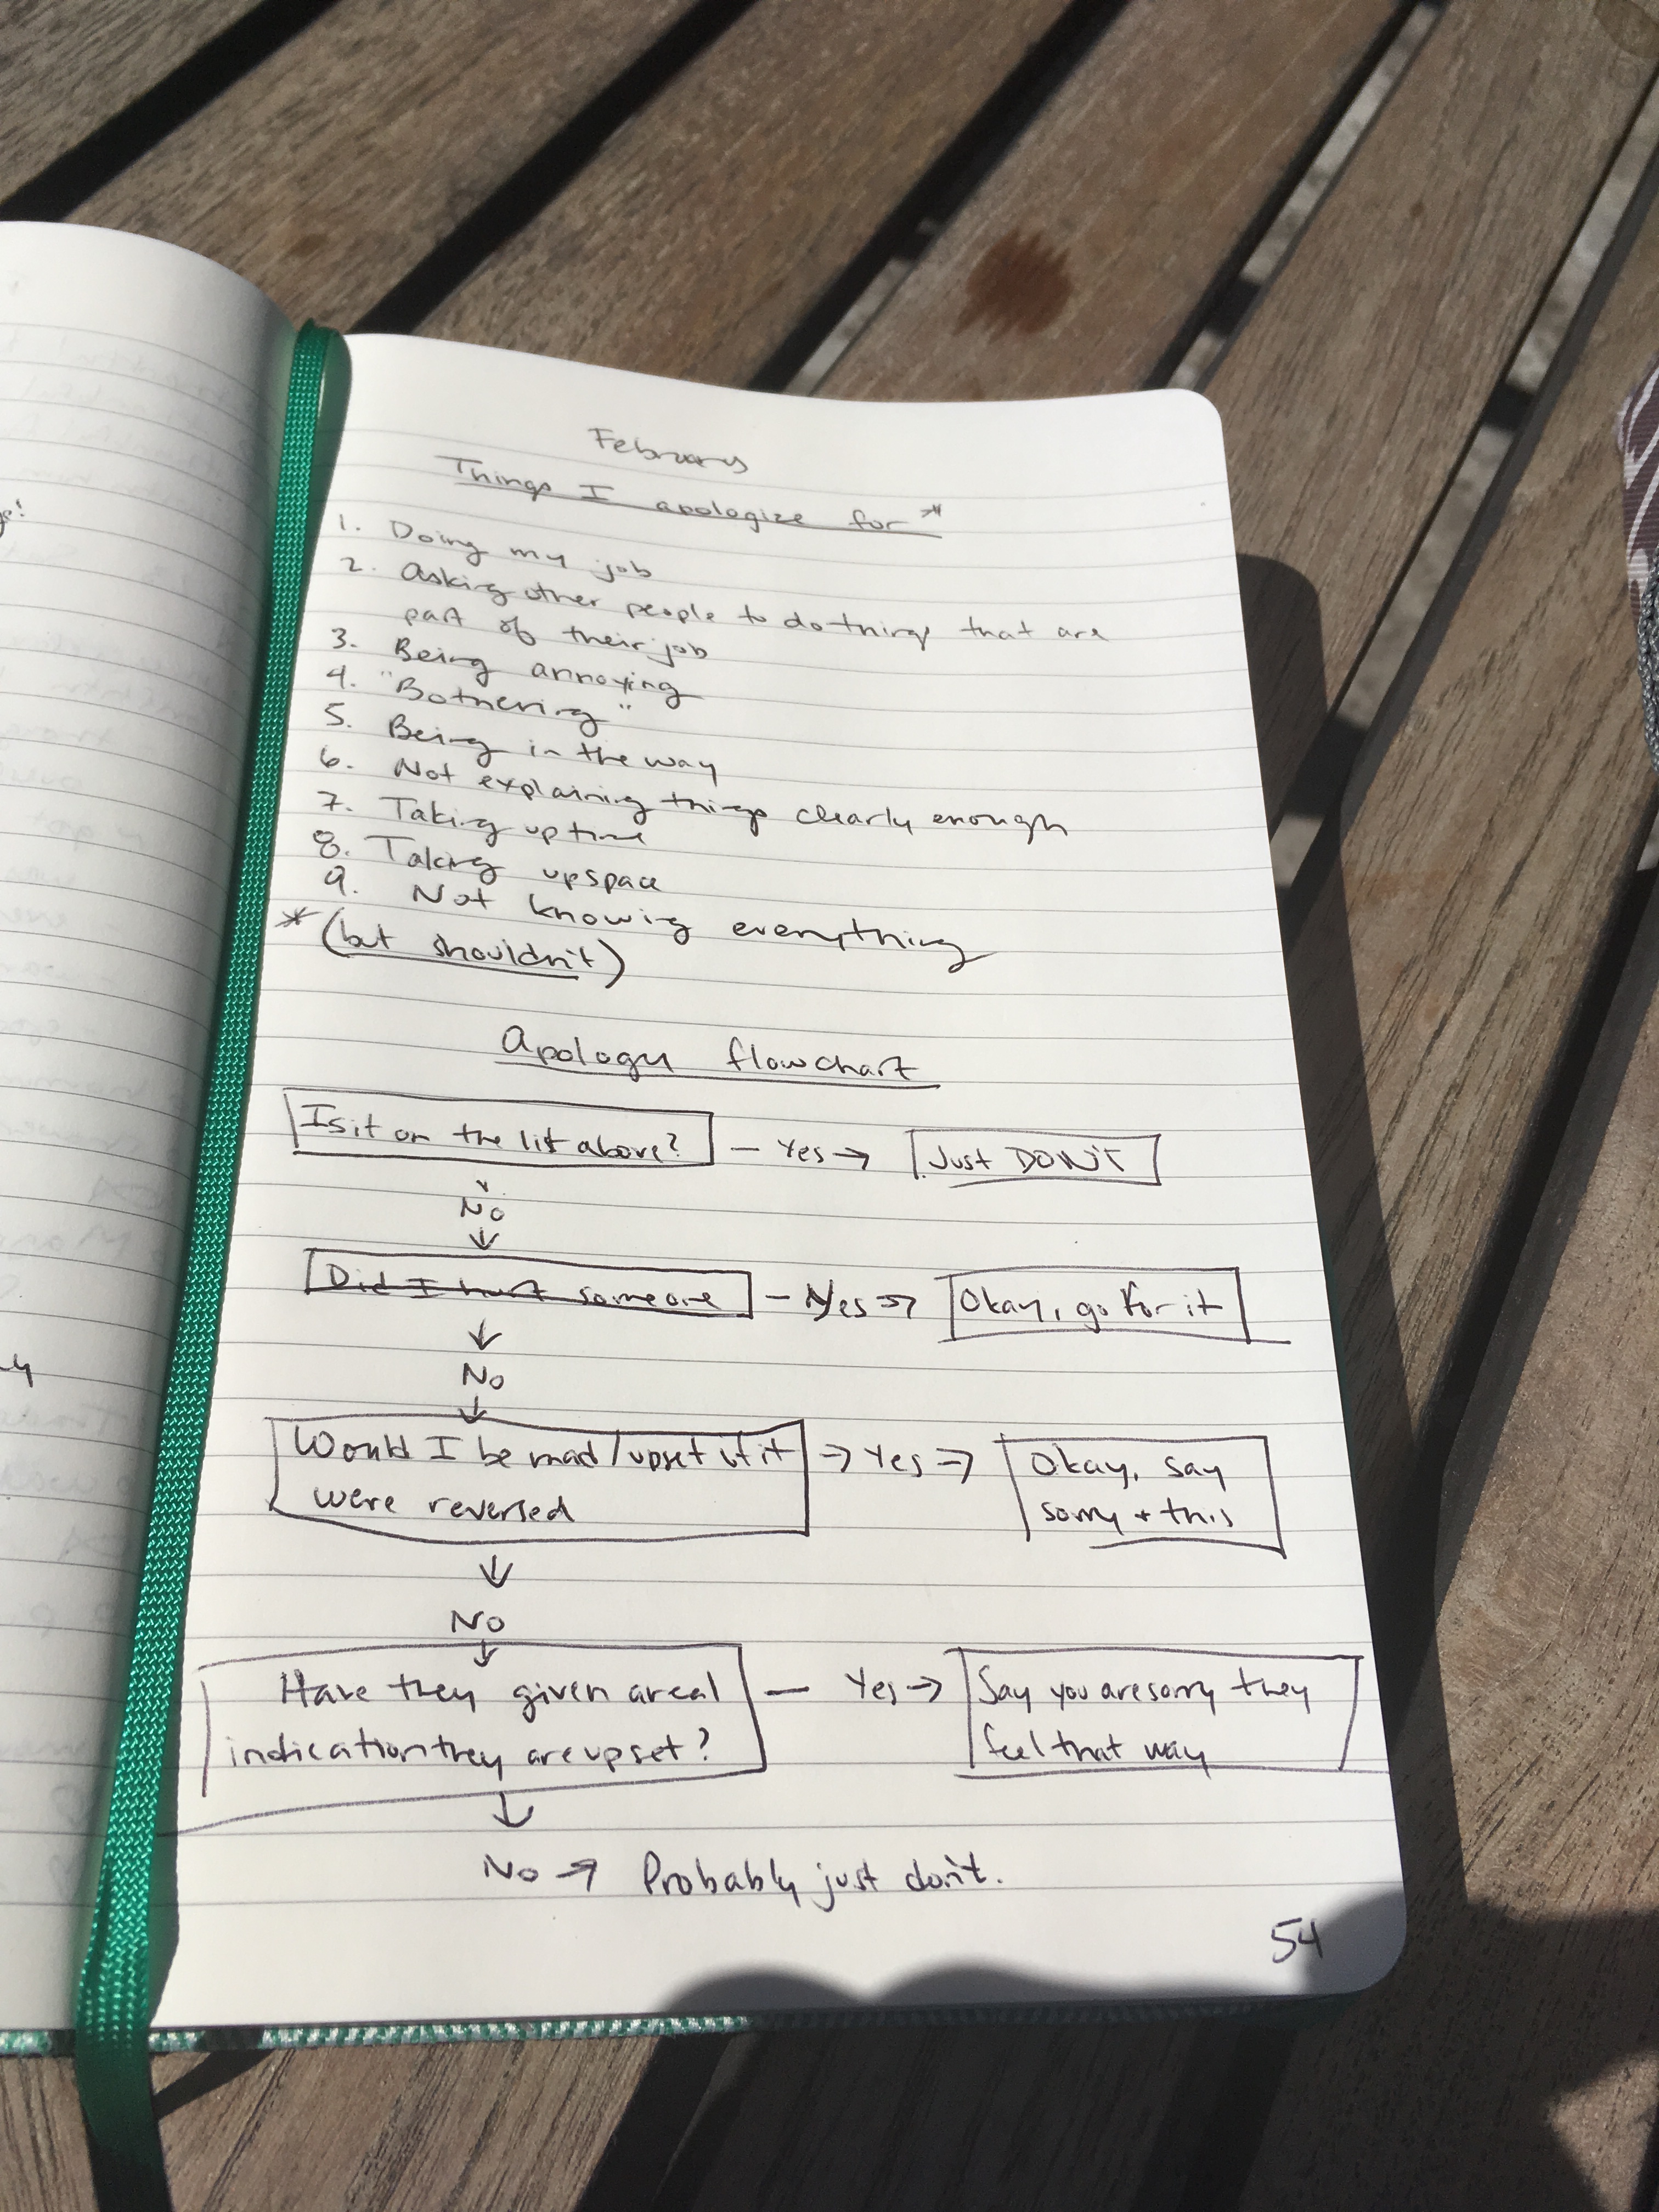 February
Things I apologize for *
1. Doing my job
2. Asking other people to do things that are
part of their job
3. Being annoying
4. "Bothering"
5. Being in the way
6. Not explaining things clearly enough
7. Taking up time
8. Taking up space
9. Not knowing everything
* (but shouldn't)
Apology flowchart
Is it on the list above? – Yes → Just DON'T
No
↓
Did I hurt someone – Yes → Okay, go for it
↓
No
↓
Would I be mad/upset if it → Yes → Okay, say
were reversed sorry + this
↓
No
↓
Have they given a real — Yes → Say you are sorry they
indication they are upset? feel that way
↓
No → Probably just don't.
54